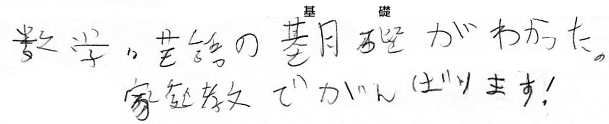 基 礎
数学、英語の基礎がわかった。
家庭教でがんばります!